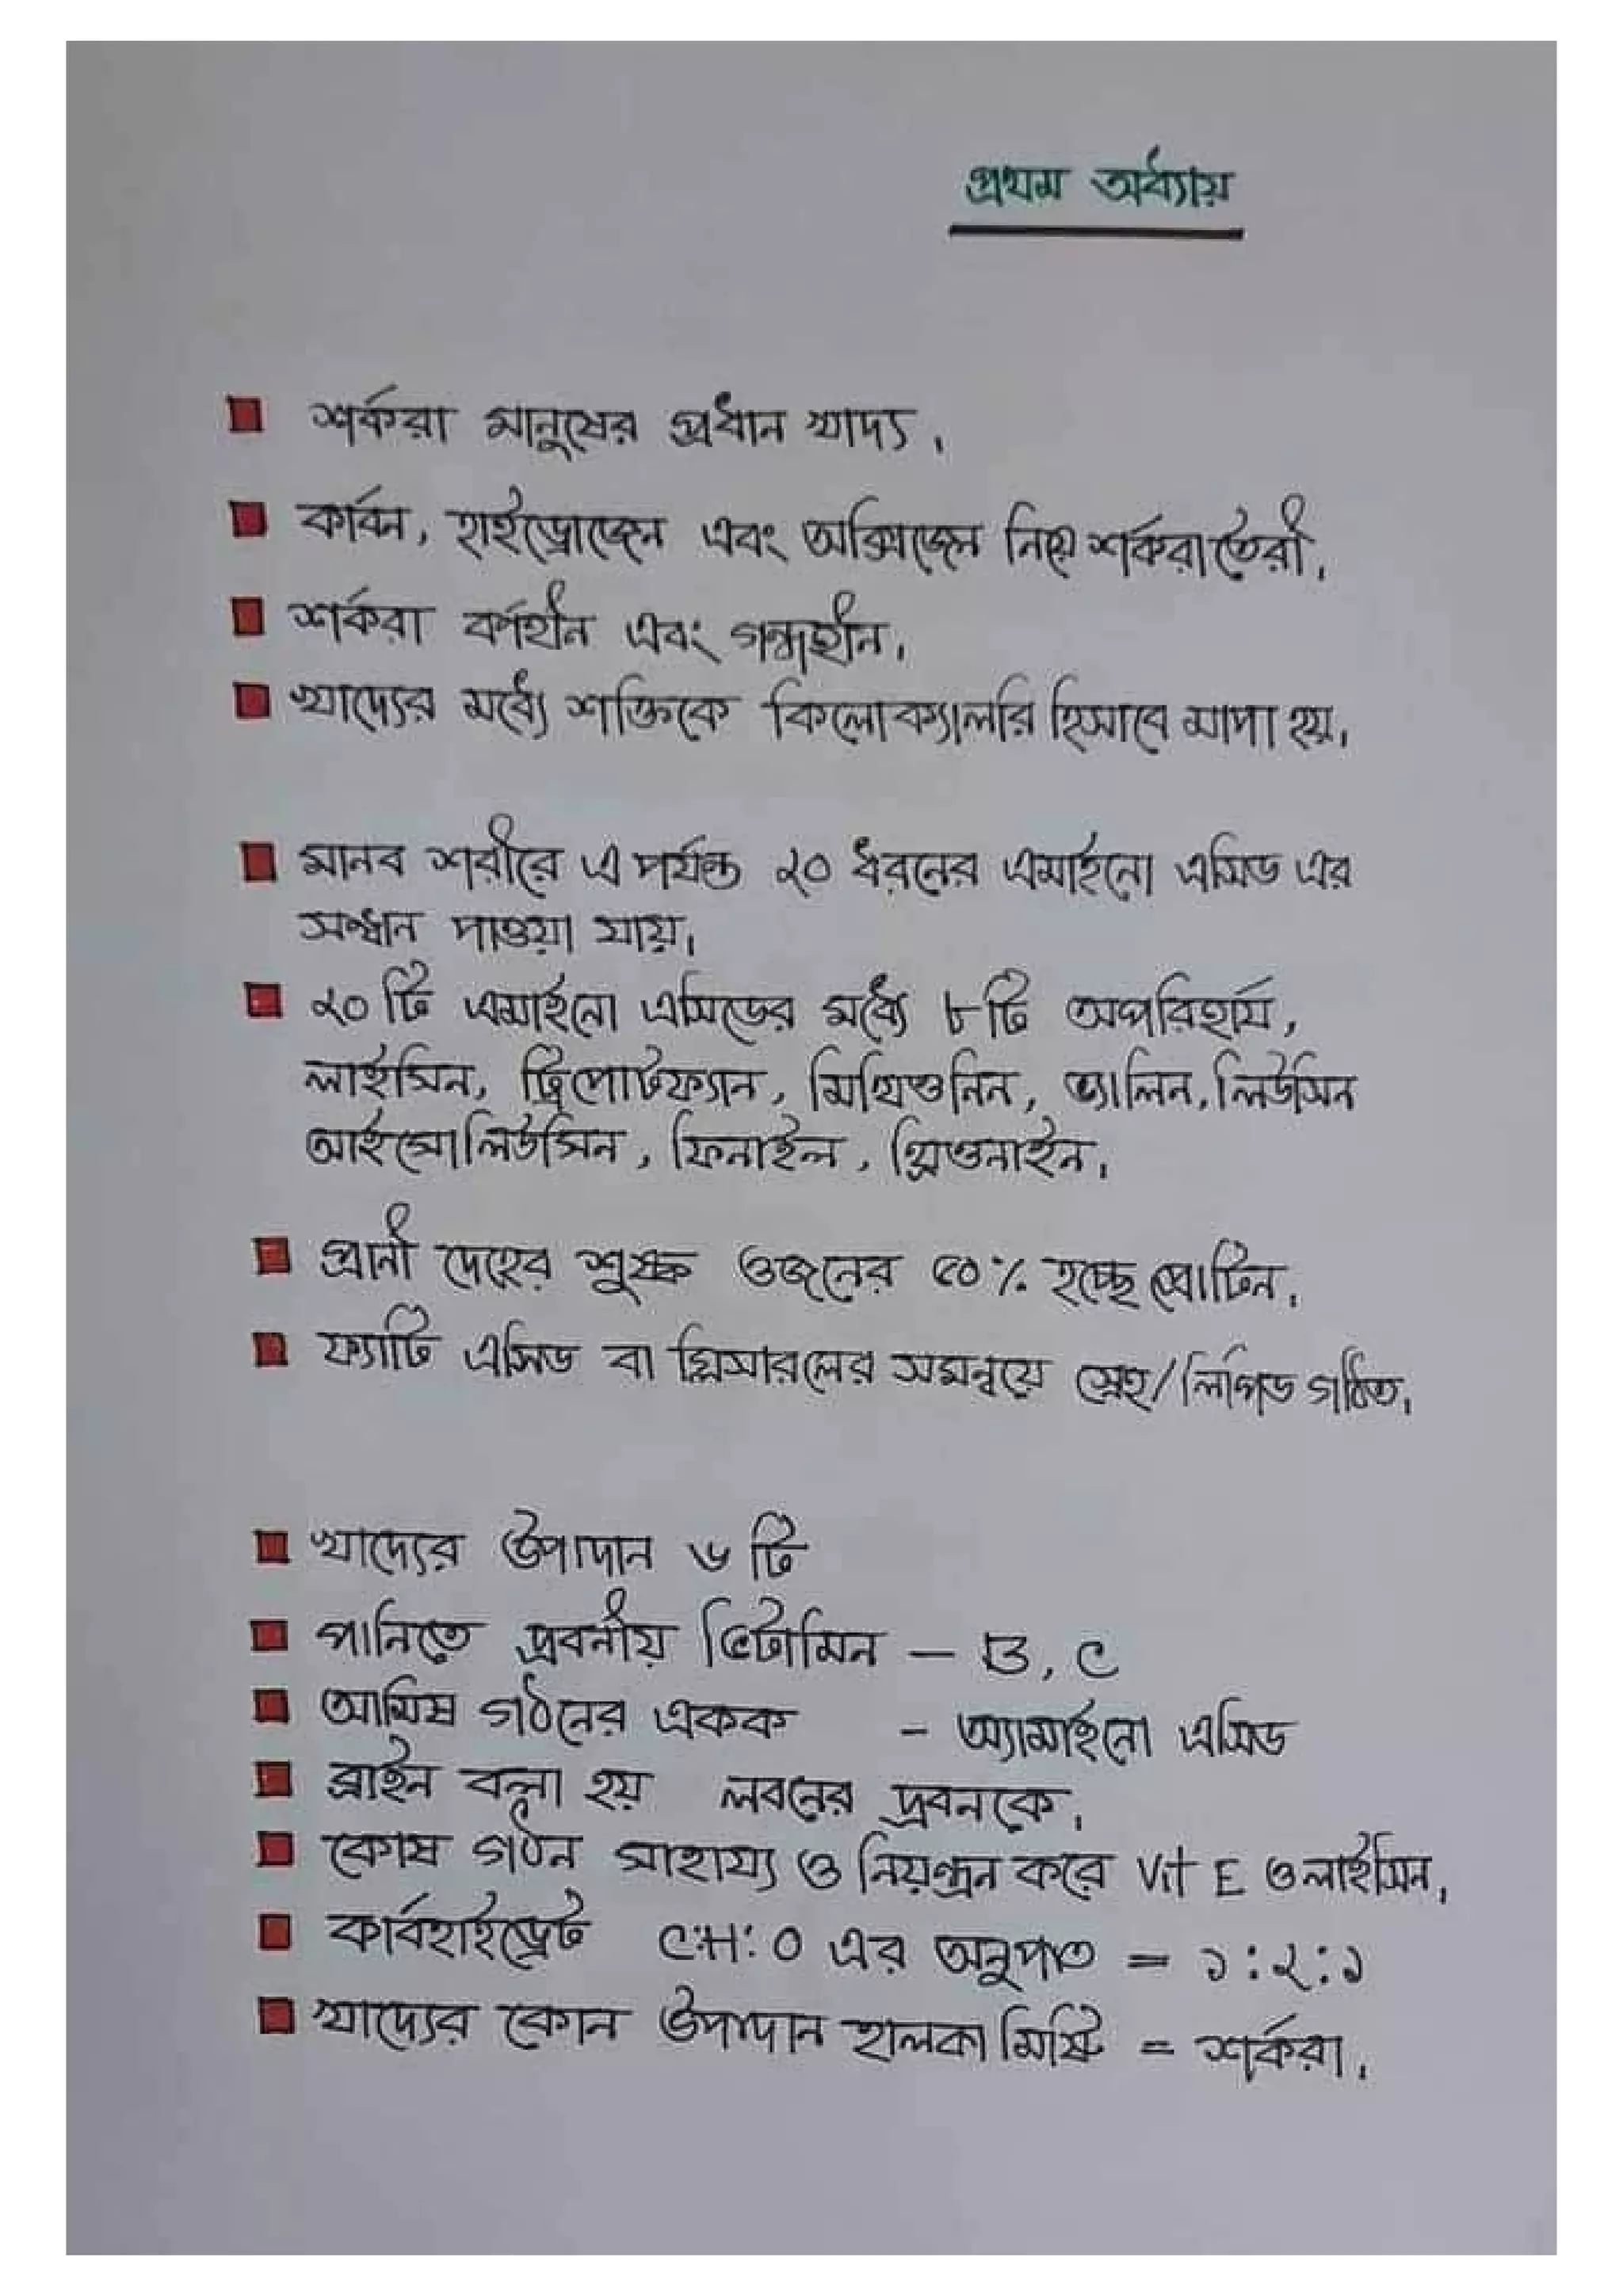 প্রথম অধ্যায়
শর্করা মানুষের প্রধান খাদ্য।
কার্বন, হাইড্রোজেন এবং অক্সিজেন নিয়ে শর্করা তৈরী।
শর্করা বর্ণহীন এবং গন্ধহীন।
খাদ্যের মধ্যে শক্তিকে কিলোক্যালরি হিসাবে মাপা হয়।
মানব শরীরে এ পর্যন্ত ২০ ধরনের এমাইনো এসিড এর
সন্ধান পাওয়া যায়।
২০ টি এমাইনো এসিডের মধ্যে ৮ টি অপরিহার্য,
লাইসিন, ট্রিপোটফ্যান, মিথিওনিন, ভ্যালিন, লিউসিন
আইসোলিউসিন, ফিনাইল, থ্রিওনাইন।
প্রানী দেহের শুষ্ক ওজনের ৫০% হচ্ছে প্রোটিন।
ফ্যাটি এসিড বা গ্লিসারলের সমন্বয়ে স্নেহ/লিপিড গঠিত।
খাদ্যের উপাদান ৬ টি
পানিতে দ্রবনীয় ভিটামিন – B, C
আমিষ গঠনের একক - অ্যামাইনো এসিড
ব্রাইন বলা হয় লবনের দ্রবনকে।
কোষ গঠন সাহায্য ও নিয়ন্ত্রন করে Vit E ও লাইসিন।
কার্বহাইড্রেট C:H:O এর অনুপাত = ১:২:১
খাদ্যের কোন উপাদান হালকা মিষ্টি = শর্করা।